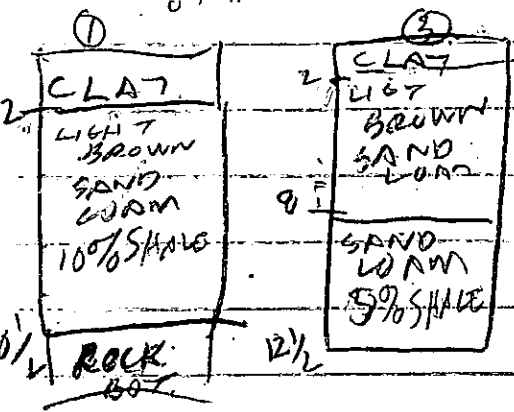 ①
CLAY
2
LIGHT
BROWN
SAND
LOAM
10% SHALE
ROCK
BOT.
③
CLAY
2
LIGT
BROWN
SAND
LOAM
8
SAND
LOAM
5% SHALE
12 1/2